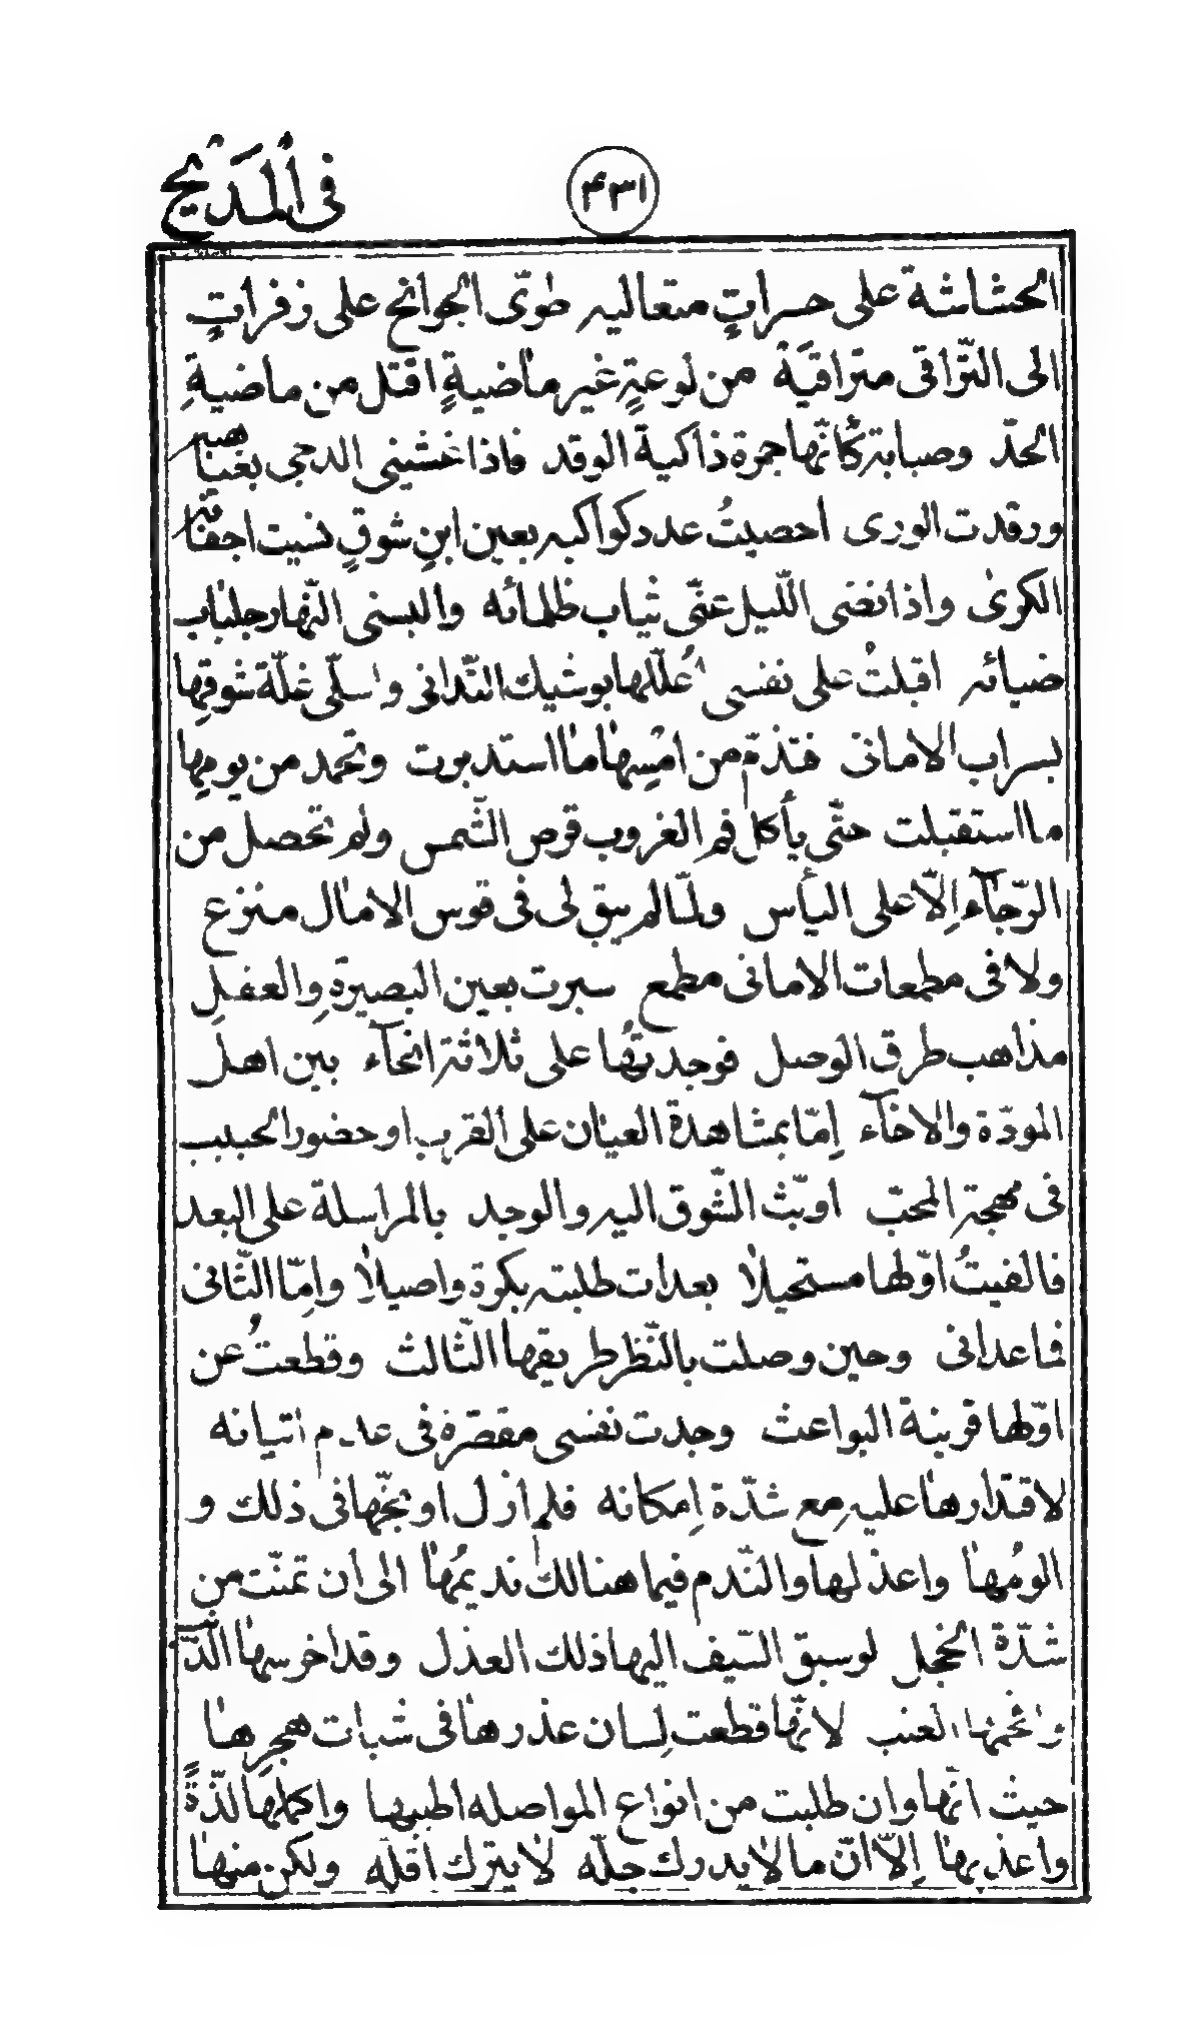 في المديح
٤٣١
الحشاشة على حسراتٍ متعاليه طوى الجوانح على زفراتٍ
الى التّراقى متراقيَة من لوعةٍ غير ماضيةٍ اقتل من ماضيةِ
الحدّ وصبابة كأنّها جمرة ذاكية الوقد فاذا غشينى الدجى بغيبه
ورقدت الورى احصيتُ عدد كواكبه بعين ابنِ شوقٍ نسيت اجفانه
الكرىٰ واذا نضى اللّيل عنّى ثياب ظلمائه والبسنى النّهار جلباب
ضيائه اقبلتُ على نفسى اُعلّلها بوشيك التّدانى واسلّى غلّة شوقِها
بسراب الامانى فتذمّ من امسِها ما استدبرت وتحمد من يومِها
ما استقبلت حتّى يأكل فم الغروب قرص الشّمس ولم تحصل من
الرّجآء اِلّا على اليأس ولمّا لم يبق لى فى قوس الامال منزع
ولا فى مطمعات الامانى مطمع سبرت بعين البصيرةِ والعقلِ
مذاهب طرق الوصل فوجدتُها على ثلاثة انحآء بين اهل
المودّة والاخآء اِمّا بمشاهدة العيان على القرب او حضور الحبيب
فى مهجة المحبّ اوبثّ الشّوق اليه والوجد بالمراسلة على البعد
فالفيتُ اوّلها مستحيلا بعد ان طلبته بكرة واصيلا واِمّا الثّانى
فما عدانى وحين وصلت بالنّظر طريقها الثّالث وقطعتُ عن
اوّلها قرينة البواعث وجدت نفسى مقصّرة فى عدم اتيانه
لاقتدارها عليه مع شدّة اِمكانه فلم ازل اوبّخها فى ذلك و
الومُها واعذلها والنّدم فيما هنالك نديمُها الى ان تمنّت من
شدّة الخجل لو سبق السّيف اليها ذلك العذل وقد اخرسها الذّنب
وافحمها العتب لانّها قطعت لِسان عذرها فى شبات هجرِها
حيث انّها وان طلبت من انواع المواصله اطيبها واكملها لذّةً
واعذبها اِلّا انّ ما لا يدرك جلّه لا يترك اقلّه ولكن منها